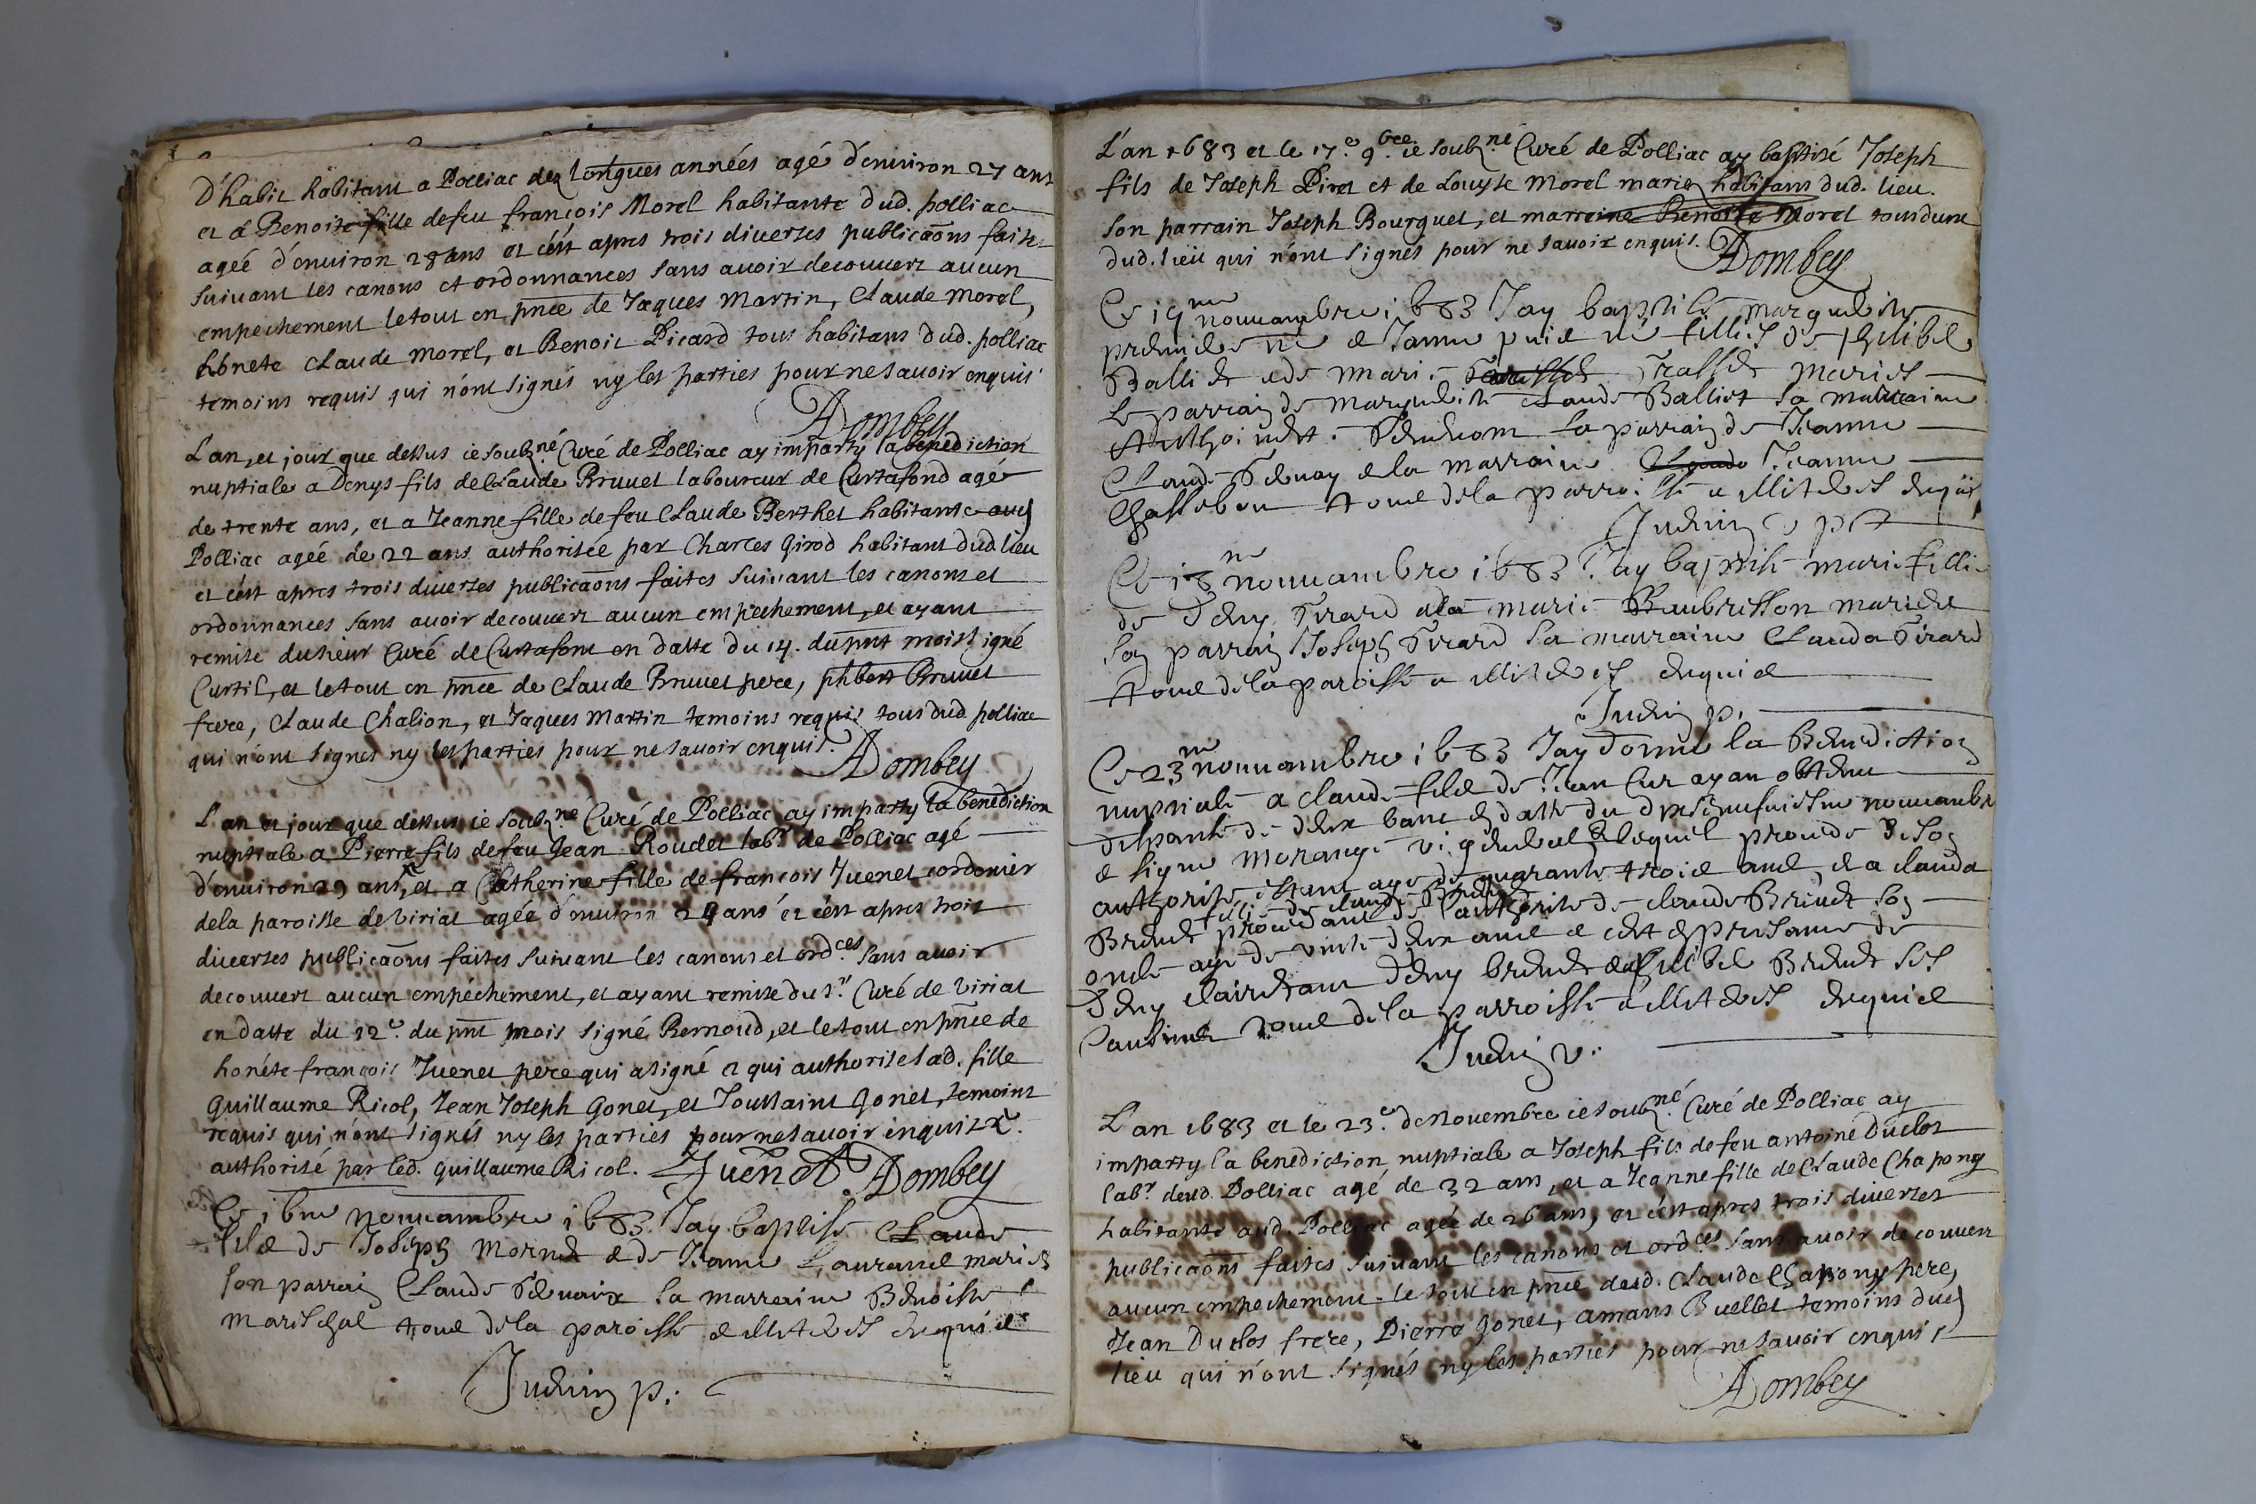 D'habit habitant a Polliac des longues années agé d'environ 27 ans
et a Benoite fille de feu françois Morel habitante dud. polliac
agée d'environ 28 ans et c'est apres trois diverses publicaõns faites
suivant les canons et ordonnances sans avoir decouvert aucun
empechement le tout en pñce de Jaques Martin, Claude Morel,
hõnete Claude Morel, et Benoit Picard tous habitans dud. polliac
temoins requis qui n'ont signés ny les parties pour ne savoir enquis
ADombey
L'an, et jour que dessus ie soubzné Curé de Polliac ay imparty la benediction
nuptiale a Denys fils de Claude Bruvet laboureur de Curtafond agé
de trente ans, et a Jeanne fille de feu Claude Berthet habitante aud
Polliac agée de 22 ans authorisée par Charles Girod habitant dud. lieu
et c'est apres trois diverses publicaõns faites suivant les canons et
ordonnances sans avoir decouvert aucun empechement, et ayant
remise du sieur Curé de Curtafont en datte du 14. du pnt mois signé
Curtil, et le tout en pñce de Claude Bruvet pere, phbert Bruvet
frere, Claude Chalion, et Jaques Martin temoins requis tous dud. polliac
qui n'ont signés ny les parties pour ne savoir enquis.
ADombey
L'an et jour que dessus ie soubzné Curé de Polliac ay imparty la benediction
nuptiale a Pierre fils de feu Jean Roudet labr de Polliac agé
d'environ 29 ans, et a Catherine fille de francois Juenet cordonier
de la paroisse de viriat agée d'environ 24 ans et c'est apres trois
diverses publicaõns faites suivant les canons et ordces sans avoir
decouvert aucun empéchement, et ayant remise du sr Curé de viriat
en datte du 12e. du pnt mois signé Bernoud, et le tout en pñce de
honéte françois Juenet pere qui a signé et qui authorise lad. fille
Guillaume Ricol, Jean Joseph Gonet, et Toussaint Gonet, temoins
requis qui n'ont signés ny les parties pour ne savoir enquis
authorisé par led. Guillaume Ricol. Juenet ADombey
Ce 16me nouvambre 1683 Jay baptise Claude
fils de Joseph Mornet e de Jeanne mariés
son parrain Claude la marraine Benoiste
Mareschal tous de la paroisse e illiteres enquis
p.
L'an 1683 et le 17.e 9bre ie soubzné Curé de Polliac ay baptisé Joseph
fils de Joseph Piret et de Louyse Morel mariez habitans dud. lieu.
son parrain Joseph Bourguet, et marreine Benoite Morel tous dud
dud. lieu qui n'ont signés pour ne savoir enquis.
ADombey
Ce 19me nouvambre 1683 Jay baptise marguerite
premiere né e Janne puis né filles de philibe
Balli et e de Marie mariés
Le parrain de marguerite Claude Balliet sa marraine
la parrain de Jeanne
Claude e la marraine Jeanne
tous de la parroisse e illiteres enquis
Ce 18me nouvambre 1683 Jay baptise marie fille
de Deny Pirard e de marie mariés
son parrain Joseph Pirard sa marraine Clauda Pirard
tous de la paroisse e illiteres enquis
p.
Ce 23me nouvambre 1683 Jay donné la benediction
nuptiale a claude fils de Jean Cur ayan obtenu
dispanse de deux bans en datte du dixneufuiesme nouvambre
e signe Morange vigeneral lequel procede de son
authorité, estant agé de quarante trois ans, e a clauda
fille de claude
procedant de l'authorité de claude son
oncle agé de vinte deux ans e c'est en presance de
Deny e philibe ses
tous de la parroisse e illiteres enquis
L'an 1683 et le 23.e de Novembre ie soubzné Curé de Polliac ay
imparty la benediction nuptiale a Joseph fils de feu antoine Duclos
labr deud. Polliac agé de 32 ans, et a Jeanne fille de Claude Chapony
habitante aud. Polliac agée de 26 ans, et c'est apres trois diverses
publicaõns faites suivant les canons et ordces sans avoir decouvert
aucun empechement. le tout en pñce dud. Claude Chapony pere,
Jean Duclos frere, Pierre Gonet, amans Buellet temoins dud
lieu qui n'ont signés ny les parties pour ne savoir enquis
ADombey